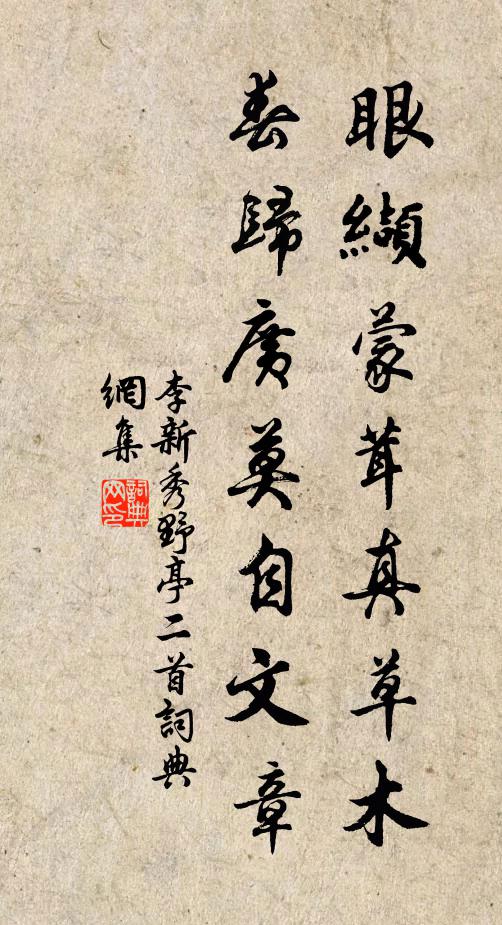 眼纈蒙茸真草木
春歸廣莫自文章
李新秀野亭二首詞典
網集
詞典網印